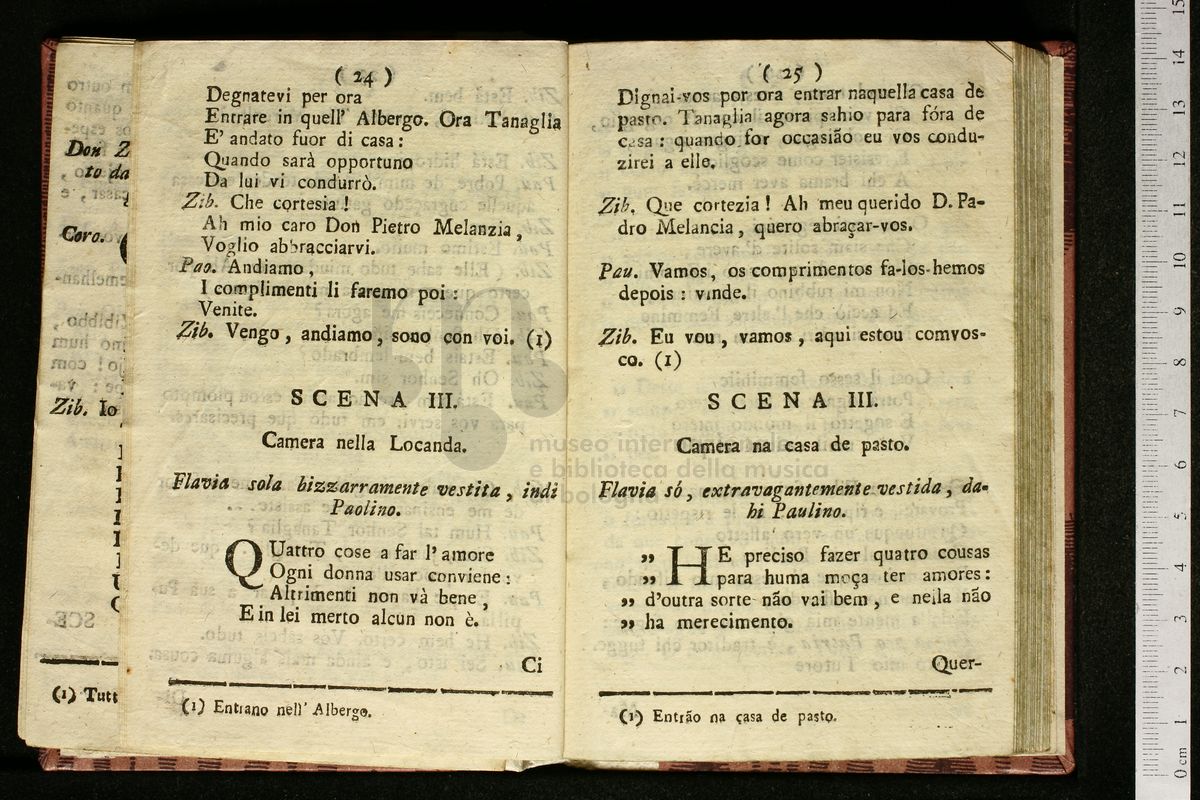 ( 24 )
Degnatevi per ora
Entrare in quell' Albergo. Ora Tanaglia
E' andato fuor di casa:
Quando sarà opportuno
Da lui vi condurrò.
Zib. Che cortesia!
Ah mio caro Don Pietro Melanzia,
Voglio abbracciarvi.
Pao. Andiamo,
I complimenti li faremo poi:
Venite.
Zib. Vengo, andiamo, sono con voi. (1)
SCENA III.
Camera nella Locanda.
Flavia sola bizzarramente vestita, indi
Paolino.
QUattro cose a far l'amore
Ogni donna usar conviene:
Altrimenti non và bene,
E in lei merto alcun non è.
Ci
(1) Entrano nell' Albergo.
( 25 )
Dignai-vos por ora entrar naquella casa de
pasto. Tanaglia agora sahio para fóra de
casa: quando for occasião eu vos condu-
zirei a elle.
Zib. Que cortezia! Ah meu querido D. Pa-
dro Melancia, quero abraçar-vos.
Pau. Vamos, os comprimentos fa-los-hemos
depois: vinde.
Zib. Eu vou, vamos, aqui estou comvos-
co. (1)
SCENA III.
Camera na casa de pasto.
Flavia só, extravagantemente vestida, da-
hi Paulino.
„ HE preciso fazer quatro cousas
„ para huma moça ter amores:
„ d'outra sorte não vai bem, e nella não
„ ha merecimento.
Quer-
(1) Entrão na casa de pasto.
Don Z
to da
Coro.
Zib. Io
(1) Tutt
museo internazionale
e biblioteca della musica
di bologna
0 cm 1 2 3 4 5 6 7 8 9 10 11 12 13 14 15